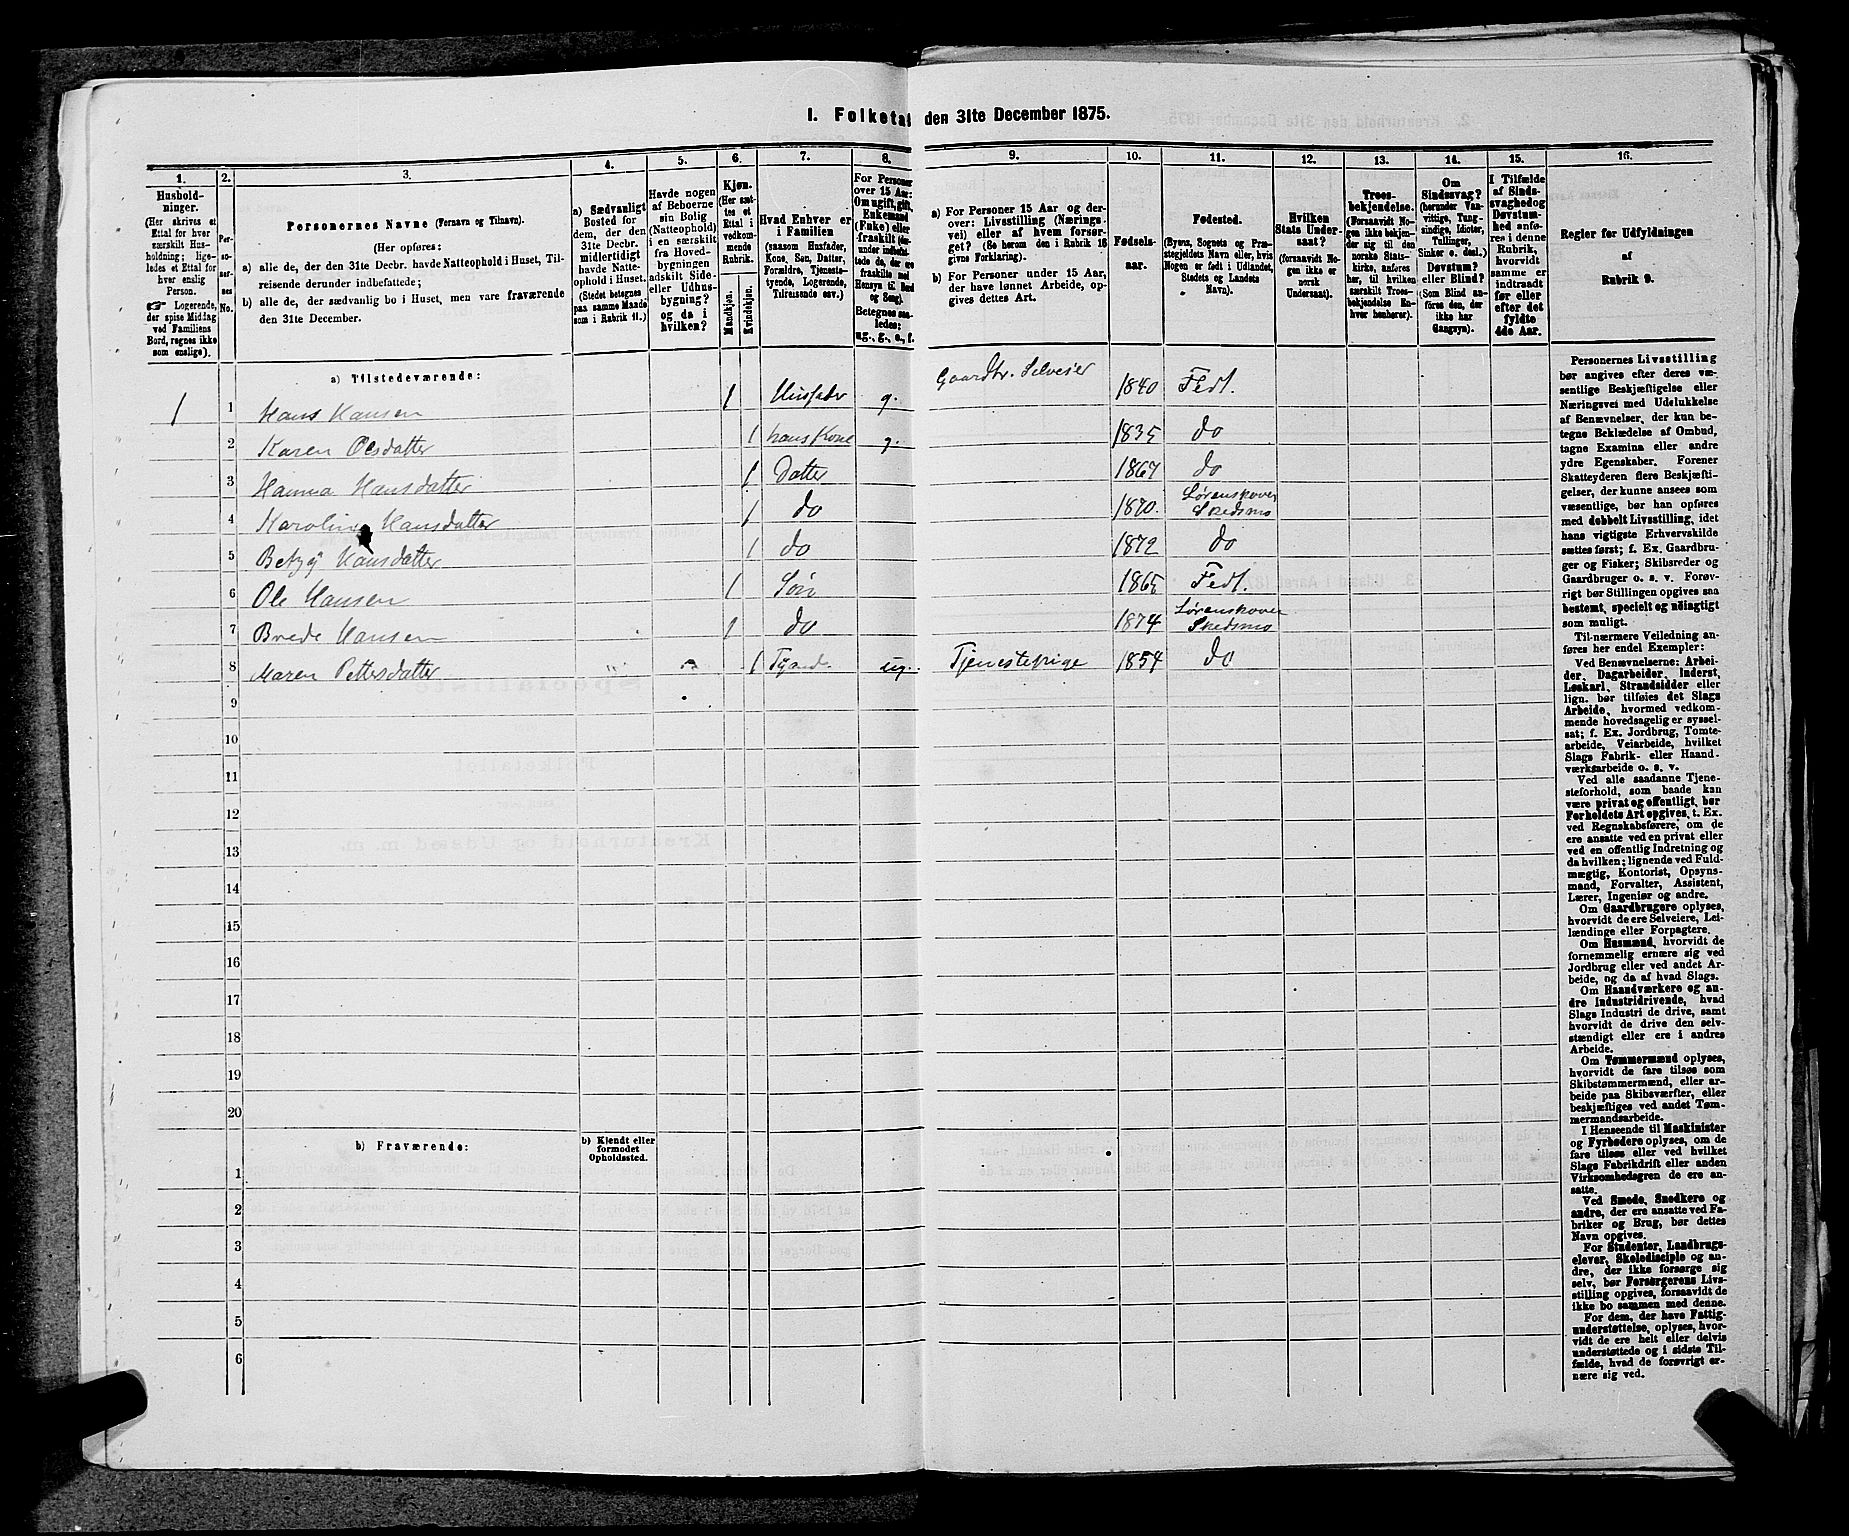 I. Folketal den 31te December 1875.
1.
Husholdninger.
(Her skrives et
Ettal for hver
særskilt Husholdning;
ligeledes et Ettal for
hver enslig
Person.
☞ Logerende,
der spise Middag
ved Familiens
Bord, regnes ikke
som enslige).
2.
Personernes No.
3.
Personernes Navne (Fornavn og Tilnavn).
(Her opføres:
a) alle de, der den 31te Decbr. havde Natteophold i Huset, Tilreisende derunder indbefattede;
b) alle de, der sædvanlig bo i Huset, men vare fraværende
den 31te December.
4.
a) Sædvanligt
Bosted for
dem, der den
31te Decbr.
midlertidigt
havde Natteophold i Huset.
(Stedet betegnes
paa samme Maade
som i Rubrik 11.)
5.
Havde nogen
af Beboerne
sin Bolig
(Natteophold)
i en særskilt
fra Hovedbygningen
adskilt Side-
eller Udhusbygning?
og da i
hvilken?
6.
Kjøn.
(Her sættes et
Ettal i
vedkommende
Rubrik.
Mandkjøn.
Kvindekjøn.
7.
Hvad Enhver er
i Familien
(saasom Husfader,
Kone, Søn, Datter,
Forældre, Tjenestetyende, Logerende,
Tilreisende osv.)
8.
For Personer
over 15 Aar:
Om ugift, gift,
Enkemand
(Enke) eller
fraskilt
Betegnes saaledes:
ug., g., e., f.
9.
a) For Personer 15 Aar og derover: Livsstilling (Næringsvei) eller af hvem forsørget? (Se herom den i Rubrik 16
givne Forklaring).
b) For Personer under 15 Aar,
der have lønnet Arbeide, opgives dettes Art.
10.
Fødselsaar.
11.
Fødested.
(Byens, Sognets og Præstegjeldets Navn, eller, hvis
Nogen er født i Udlandet,
Stedets og Landets
Navn).
12.
Hvilken
Stats Undersaat?
(Forsaavidt Nogen ikke er
norsk
Undersaat).
13.
Troesbekjendelse.
(Forsaavidt Nogen ikke bekjender sig til den
norske Statskirke, anføres
her, til hvilken
særskilt Troesbekjendelse Enhver henhører).
14.
Om
Sindssvag?
(herunder Vanvittige, Tungsindige, Idioter,
Tullinger,
Sinker o. desl.)
Døvstum?
eller Blind?
(Som Blind anføres den, der
ikke har
Gangsyn).
15.
I Tilfælde
af Sindssvaghed og
Døvstumhed anføres i denne
Rubrik,
hvorvidt
samme er
indtraadt
før eller
efter det
fyldte
4de Aar.
16.
Regler for Udfyldningen
af
Rubrik 9.
a) Tilstedeværende:
1 1 Hans Hansen 1 Husfader g. Gaardbr. Selveier 1840 Fedt.
2 Karen Olsdatter 1 hans Kone g. 1835 do
3 Hanna Hansdatter 1 Datter 1867 do
4 Karoline Hansdatter 1 do 1870 Lørenskoven Skedsmo
5 Betzy Hansdatter 1 do 1872 do
6 Ole Hansen 1 Søn 1865 Fedt.
7 Brede Hansen 1 do 1874 Lørenskoven Skedsmo
8 Maren Pettersdatter 1 Tyende ug. Tjenestepige 1854 do
9
10
11
12
13
14
15
16
17
18
19
20
b) Fraværende:
b) Kjendt eller
formodet
Opholdssted.
1
2
3
4
5
6
Personernes Livsstilling
bør angives efter deres væsentlige Beskjæftigelse eller
Næringsvei med Udelukkelse
af Benævnelser, der kun betegne Beklædelse af Ombud,
tagne Examina eller andre
ydre Egenskaber. Forener
Skatteyderen flere Beskjæftigelser, der kunne ansees som
væsentlige, bør han opføres
med dobbelt Livsstilling, idet
hans vigtigste Erhvervskilde
sættes først; f. Ex. Gaardbruger og Fisker; Skibsreder og
Gaardbruger o. s. v. Forøvrigt bør Stillingen opgives saa
bestemt, specielt og nøiagtigt
som muligt.
Til nærmere Veiledning anføres her endel Exempler:
Ved Benævnelserne: Arbeider, Dagarbeider, Inderst,
Løskarl, Strandsidder eller
lign. bør tilføies det Slags
Arbeide, hvormed vedkommende hovedsagelig er sysselsat; f. Ex. Jordbrug, Tomtearbeide, Veiarbeide, hvilket
Slags Fabrik- eller Haandværksarbeide o. s. v.
Ved alle saadanne Tjenesteforhold, som baade kan
være privat og offentligt, bør
Forholdets Art opgives, t. Ex.
ved Regnskabsførere, om de
ere ansatte ved en privat eller
ved en offentlig Indretning og
da hvilken; lignende ved Fuldmægtig, Kontorist, Opsynsmand, Forvalter, Assistent,
Lærer, Ingeniør og andre.
Om Gaardbrugere oplyses,
hvorvidt de ere Selveiere, Leilændinge eller Forpagtere.
Om Husmænd, hvorvidt de
fornemmelig ernære sig ved
Jordbrug eller ved andet Arbeide, og da af hvad Slags.
Om Haandværkere og andre Industridrivende, hvad
Slags Industri de drive, samt
hvorvidt de drive den selvstændigt eller ere i andres
Arbeide.
Om Tømmermænd oplyses,
hvorvidt de fare tilsøs som
Skibstømmermænd, eller arbeide paa Skibsværfter, eller
beskjæftiges ved andet Tømmermandsarbeide.
I Henseende til Maskinister
og Fyrbødere oplyses, om de
fare tilsøs eller ved hvilket
Slags Fabrikdrift eller anden
Virksomhedsgren de ere ansatte.
Ved Smede, Snedkere og
andre, der ere ansatte ved Fabriker og Brug, bør dettes
Navn opgives.
For Studenter, Landbrugselever, Skoledisciple og andre, der ikke forsørge sig
selv, bør Forsørgerens Livsstilling opgives, forsaavidt de
ikke bo sammen med denne.
For dem, der have Fattigunderstøttelse, oplyses, hvorvidt de ere helt eller delvis
understøttede og i sidste Tilfælde, hvad de forøvrigt ernære sig ved.